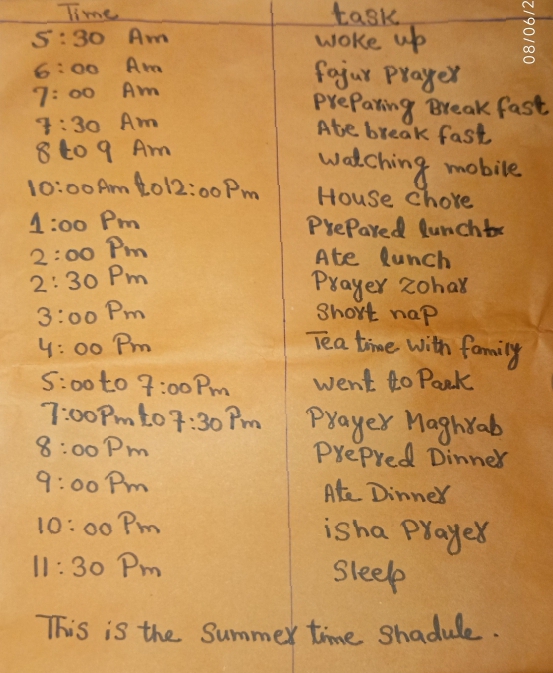 Time task
5:30 Am woke up
6:00 Am fajur Prayer
7:00 Am PreParing Break fast
7:30 Am Ate break fast
8 to 9 Am watching mobile
10:00 Am to 12:00 Pm House chore
1:00 Pm PrePared lunch
2:00 Pm Ate lunch
2:30 Pm Prayer zohar
3:00 Pm Short nap
4:00 Pm Tea time with family
5:00 to 7:00 Pm went to Park
7:00 Pm to 7:30 Pm Prayer Maghrab
8:00 Pm PrePred Dinner
9:00 Pm Ate Dinner
10:00 Pm isha Prayer
11:30 Pm Sleep
This is the Summer time Shadule.
08/06/2